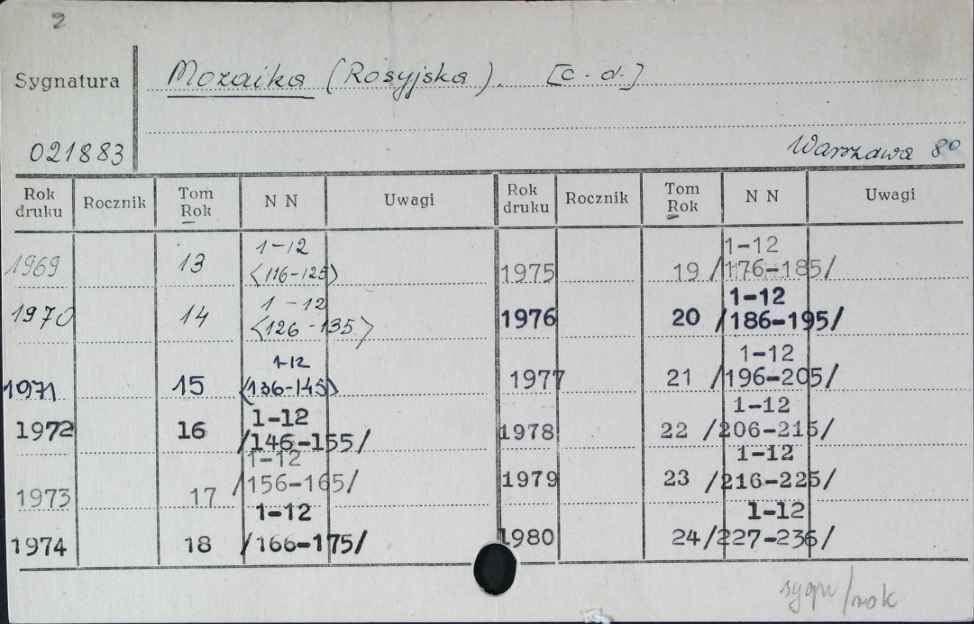 2
Sygnatura Mozaika (Rosyjska). [c.d.]
021883 Warszawa 80
Rok druku Rocznik Tom Rok N N Uwagi Rok druku Rocznik Tom Rok N N Uwagi
1969 13 1-12 <116-125> 1975 19 1-12 /176-185/
1970 14 1-12 <126-135> 1976 20 1-12 /186-195/
1971 15 1-12 <136-145> 1977 21 1-12 /196-205/
1972 16 1-12 /146-155/ 1978 22 1-12 /206-215/
1973 17 1-12 /156-165/ 1979 23 1-12 /216-225/
1974 18 1-12 /166-175/ 1980 24 1-12 /227-236/
sygn/rok